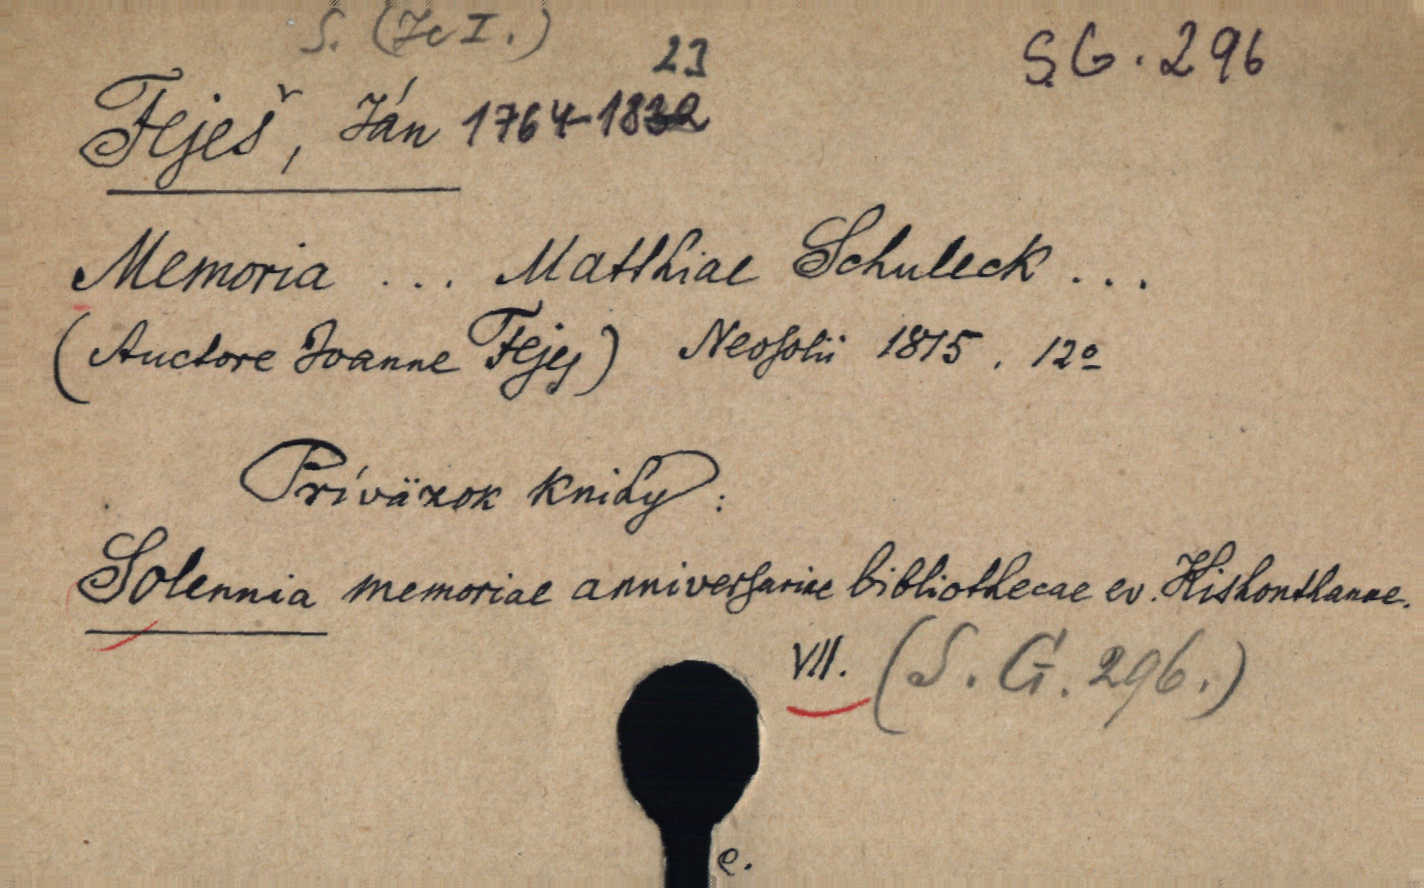 S. (Je I.)
S.G. 296
23
Feješ, Ján 1764-1832
Memoria ... Matthiae Schuleck ...
(Auctore Joanne Fejes) Neosolii 1815. 12º
Prívazok knihy:
Solennia memoriae anniversariae bibliothecae ev. Kishonthanae.
VII. (S. G. 296.)
e.